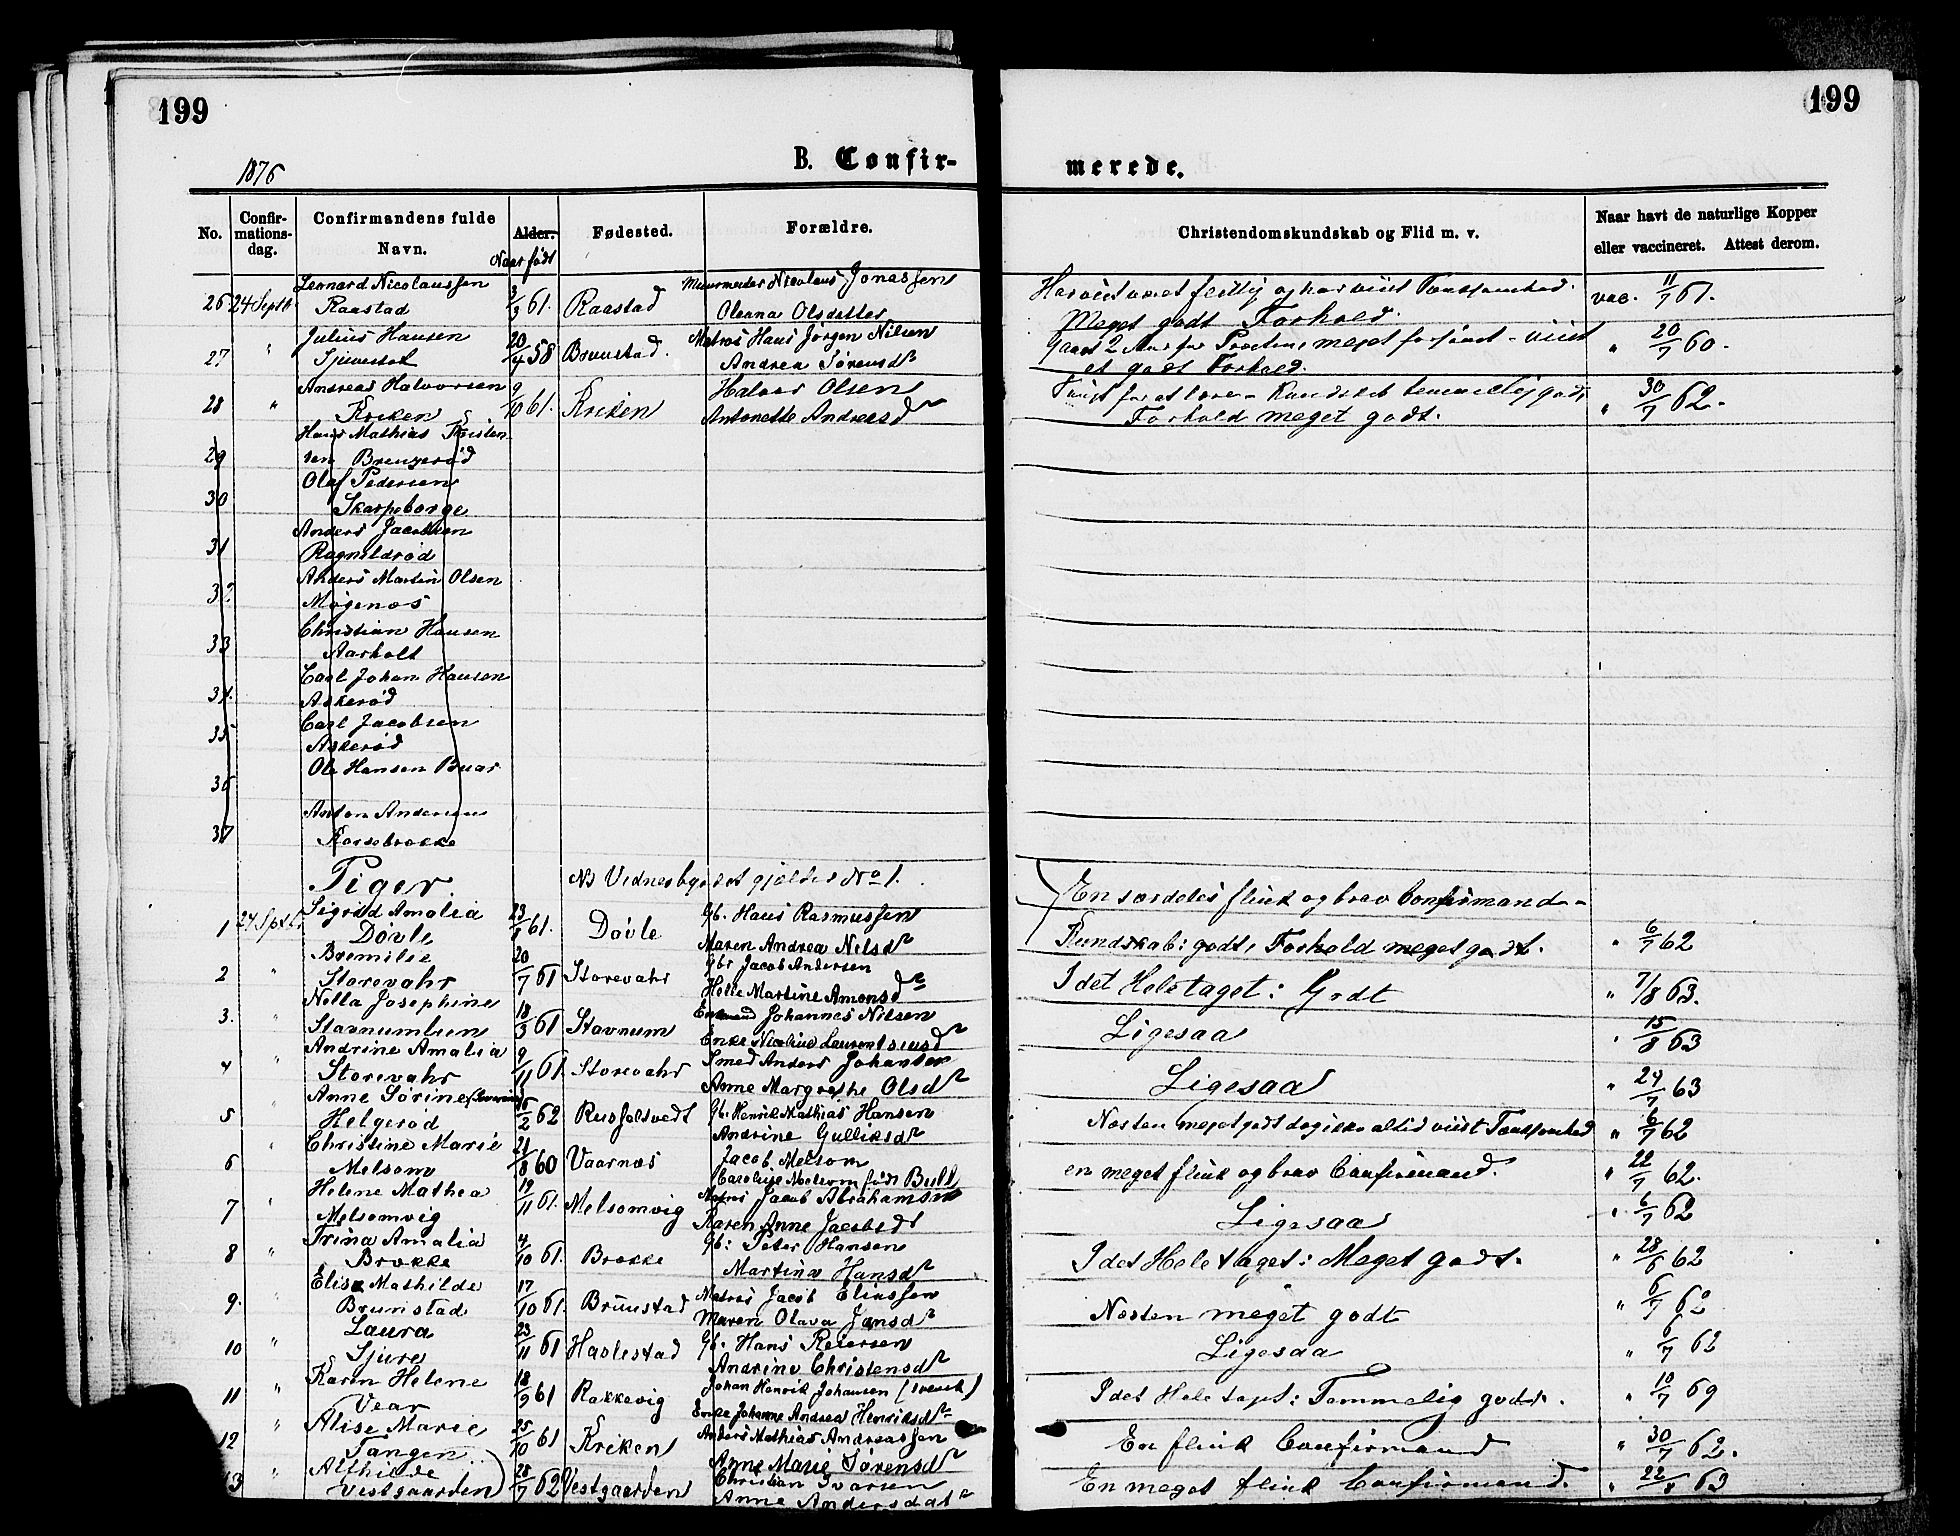 199
199
1876
B. Confir-
merede.
No.
Confir-
mations-
dag.
Confirmandens fulde
Navn.
Alder.
Naar født
Fødested.
Forældre.
Christendomskundskab og Flid m. v.
Naar havt de naturlige Kopper
eller vaccineret. Attest derom.
Leonard Nicolaussen Muurmester Nicolaus Jonassen
26 24 Septb Raastad 3/3 61. Raastad Oleana Olsdatter vac. 11/7 61.
Meget godt Forhold.
Julius Hansen Matros Hans Jørgen Nilsen
27 " 20/4 58 Bruustad. Andrea Sørensdr " 20/7 60.
et godt Forhold.
Andreas Halvorsen Halvor Olsen
28 " Kriken 9/10 61. Kriken Antonette Andreasdr " 30/7 62.
Forhold meget godt.
Hans Mathias Kristen
29 sen Brengerød
Olaf Pedersen
30 Skarpeborge
Anders Jacobsen
31 Ragnildrød
Anders Martin Olsen
32. Møgenæs
Christian Hansen
33 Aarholt
Carl Johan Hansen
34. Askerød
Carl Jacobsen
35 Askerød
Ole Hansen Buar
36
Anton Andersen
37 Korsebrække
Piger. NB Vidnesbyrdet gjælder No 1.
En særdeles flink og brav Confirmand-
Sigrid Amalia Gb. Hans Rasmussen
1 24 Sptbr Døvle 61. Døvle Maren Andrea Nilsdr
Kundskab: godt, Forhold meget godt. " 6/7 62
Bremilie Gbr Jacob Andersen
2 " Storevahr 20/7 61 Storevahr Helle Martine Amonsdr
I det Heletaget: Godt " 7/8 63.
Nella Josephine Johannes Nilsen
3. " Stavnumlien 18/3 61 Stavnum Enke Nicoline Laurentsensdr
Ligesaa " 15/8 63
Andrine Amalia Smed Anders Johansen
4 " Storevahr 9/11 61. Storevahr Anne Margrethe Olsdr
Ligesaa " 24/7 63
Anne Sørine Gb. Henrik Mathias Hansen
5 " Helgerød 62 Andrine Gulliksdr
Næsten meget godt " 6/7 62
Christine Marie Jacob Melsom
6 " Melsom 21/8 60 Vaarnæs Caroline Melsom født Bull
en meget flink og brav Confirmand. " 22/7 62.
Helene Mathea Jacob Abrahamsen
7 " Melsomvig 19/11 61. Melsomvig Karen Anne Jacobsdr
Ligesaa " 6/7 62
Trina Amalia Gb: Peter Hansen
8 " Brække 4/10 61. Brække Martina Hansdr
I det Hele taget: Meget godt. " 28/6 62
Elise Mathilde Matros Jacob Eliassen
9. " Brunstad 17/10 61. Bruustad Maren Olava Jansdr
Næsten meget godt " 6/7 62
Laura Gb. Hans Reiersen
10 " Sjure 23/11 61 Haslestad Andrine Christensdr
Ligesaa " 6/7 62
Karen Helene Johan Henrik Johansen
11 " Vear 18/9 61 Rakkevig Enke Johanne Andrea Henriksdr
I det Hele taget: Temmelig godt. " 10/7 69
Alise Marie Anders Mathias Andreassen
12 " Tangen 25/10 61 Kriken Anne Marie Sørensdr
En flink Confirmand " 30/7 62.
Alfhilde Christian Ivarsen
13 " Vestgaarden 28/7 62 Vestgaarden Anne Andersdatr
En meget flink Confirmand. " 63